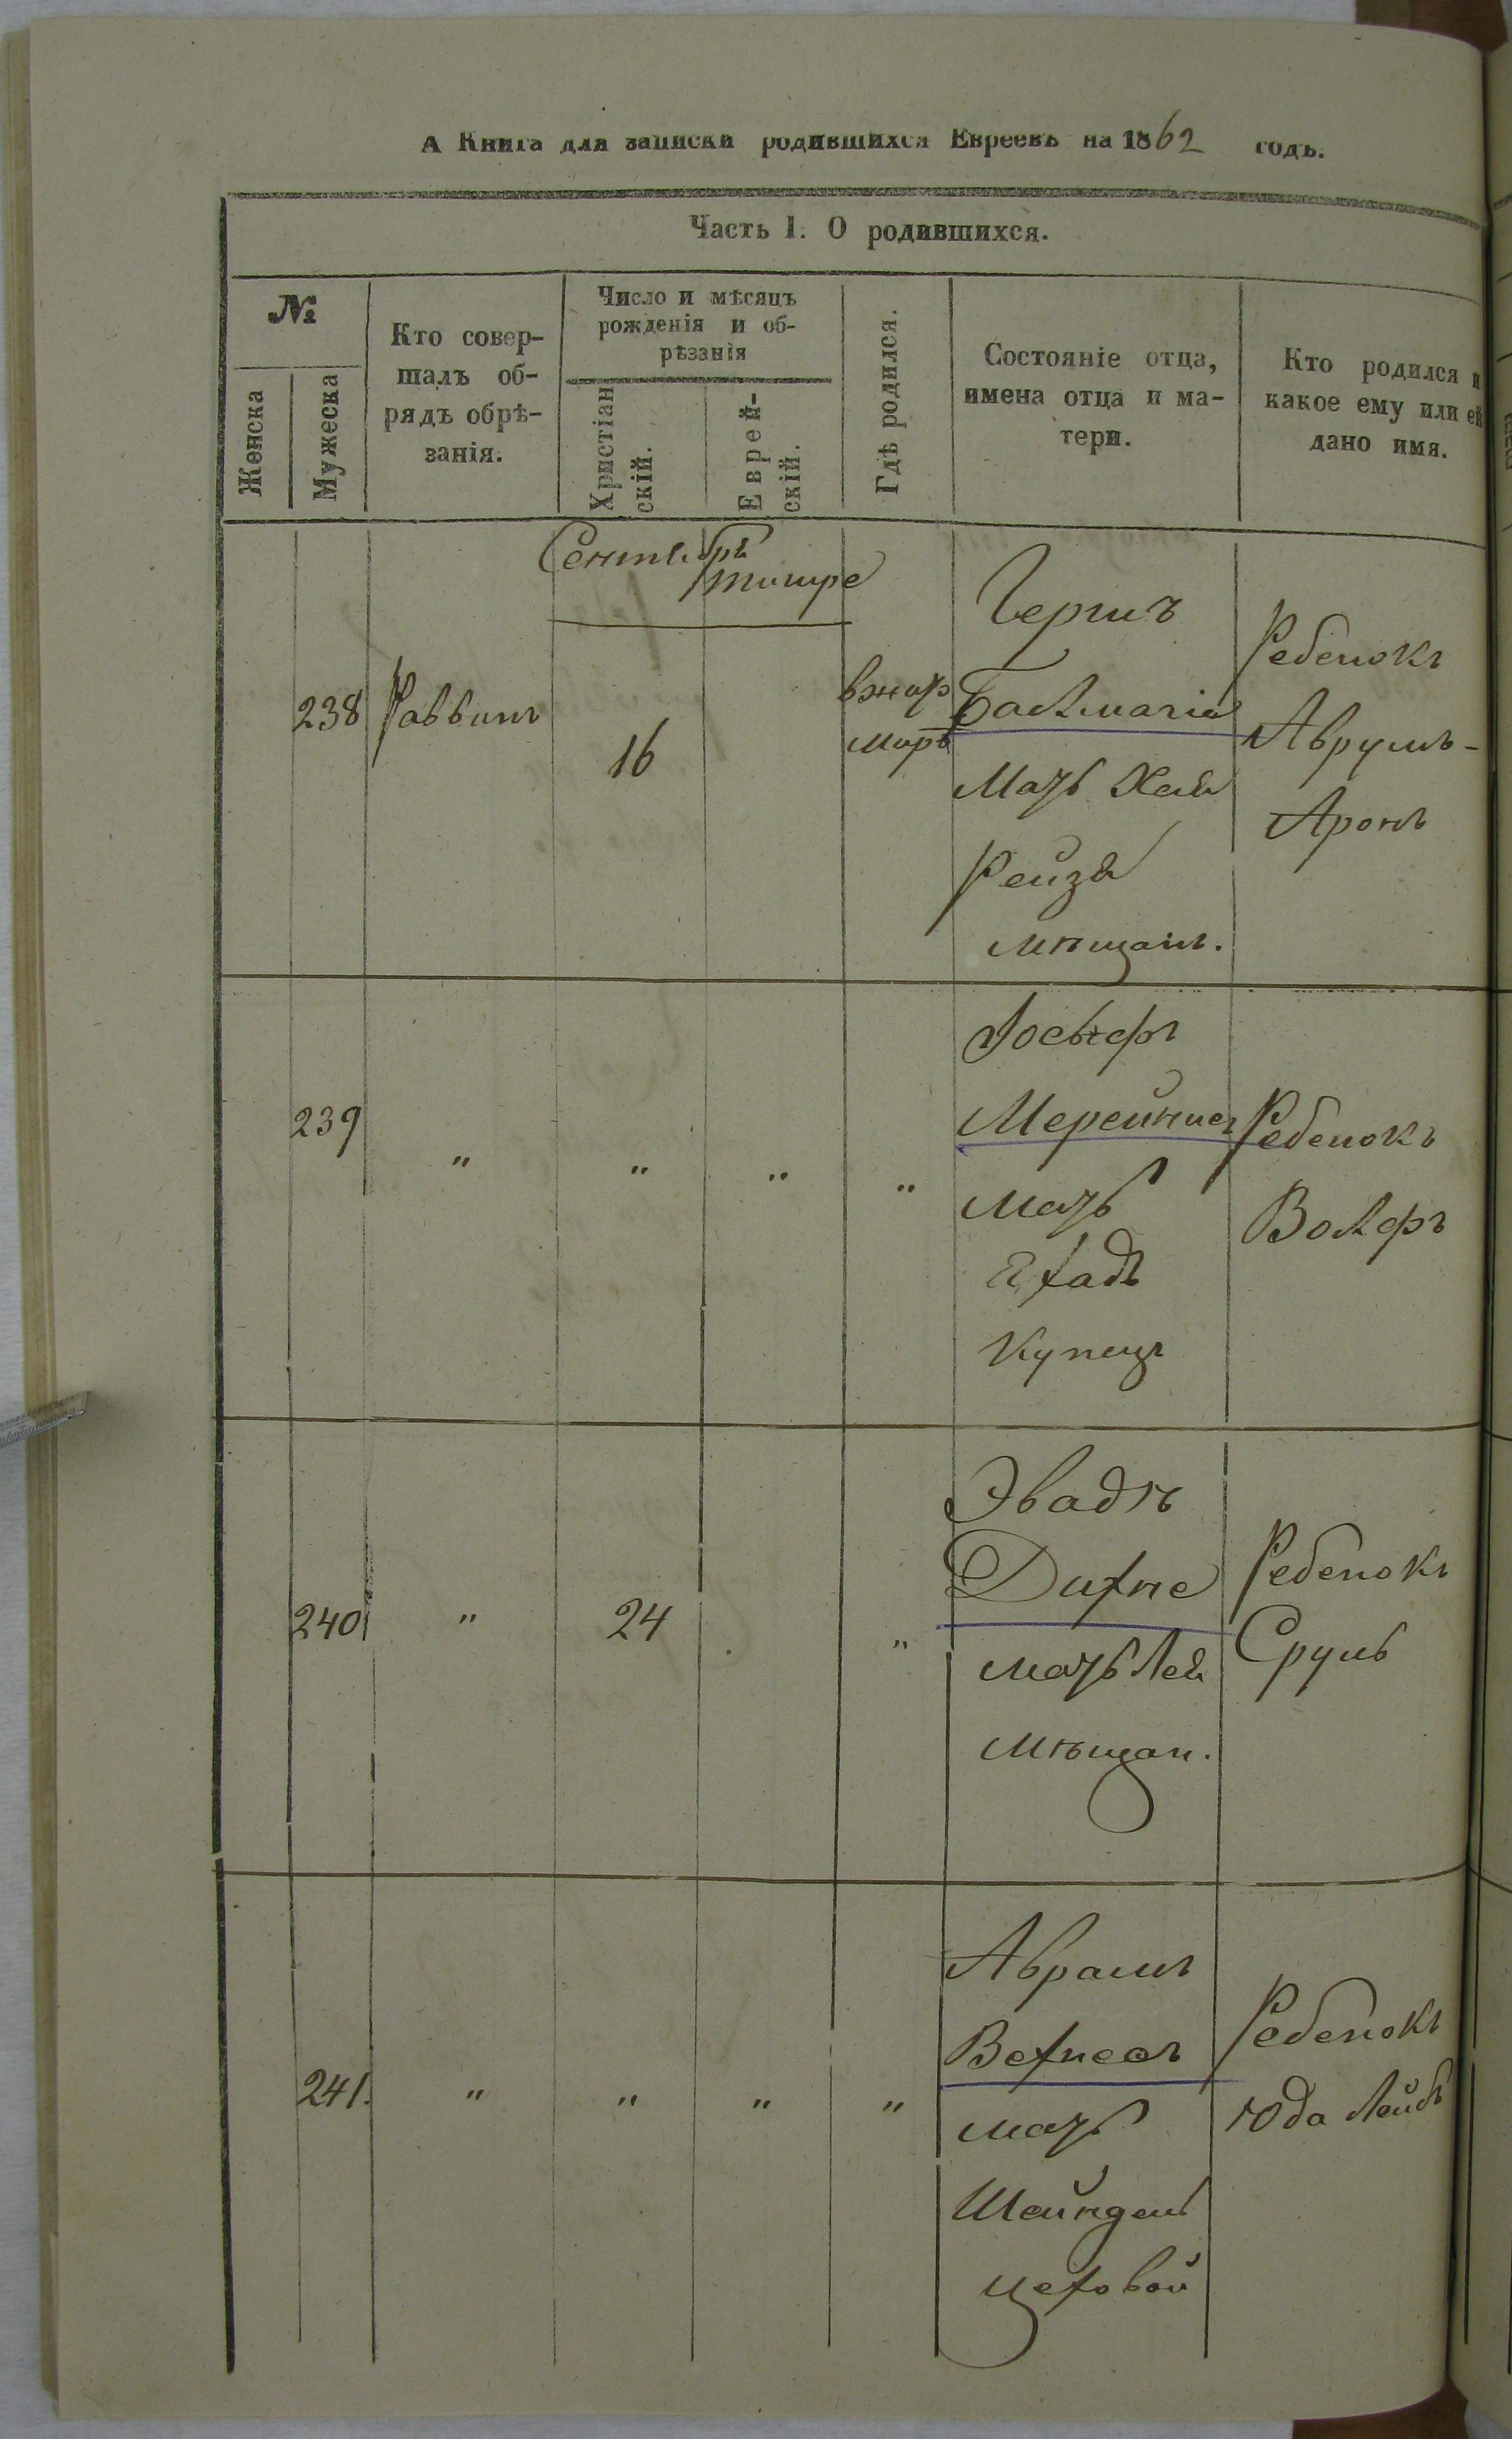 А Книга для записки родившихся Евреевъ на 1862 годъ.
Часть 1. О родившихся.
№
Женска
Мужеска
Кто совер-
шалъ об-
рядъ обрѣ-
занія.
Число и мѣсяцъ
рожденія и об-
рѣзанія
Христіан
скій.
Еврей-
скій.
Гдѣ родился.
Состояніе отца,
имена отца и ма-
тери.
Кто родился и
какое ему или ей
дано имя.
Сентябрь
тишре
238
Раввинъ
16
Гершъ
мать Хая
Рейза
мѣщан.
Ребенокъ
Аврумъ-
Аронъ
239
"
"
"
"
Іосифъ
мать
Купецъ
Ребенокъ
Волфъ
240
"
24
"
Дихне
мать Лея
мѣщан.
Ребенокъ
Сруль
241.
"
"
"
"
Аврамъ
мать
цеховой
Ребенокъ
Юда Лейбъ